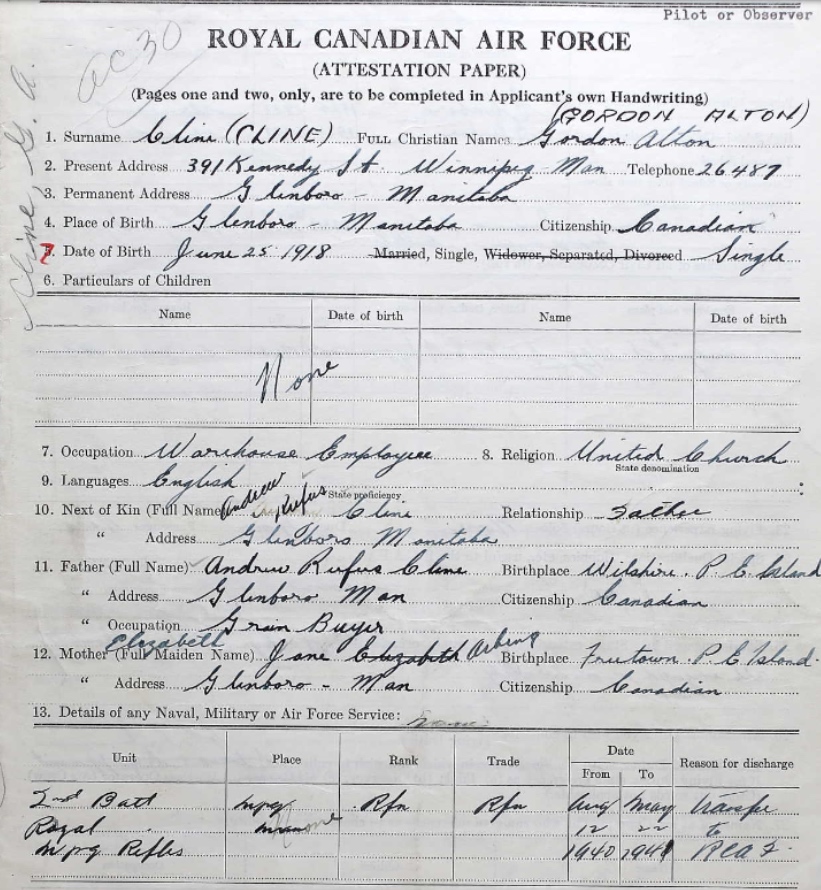 Pilot or Observer
ac 30
ROYAL CANADIAN AIR FORCE
(ATTESTATION PAPER)
(Pages one and two, only, are to be completed in Applicant's own Handwriting)
(GORDON ALTON)
Cline, G. A.
1. Surname Cline (CLINE) FULL Christian Names Gordon Alton
2. Present Address 391 Kennedy St Winnipeg Man Telephone 26487
3. Permanent Address Glenboro - Manitoba
4. Place of Birth Glenboro - Manitoba Citizenship Canadian
5. Date of Birth June 25 1918 Married, Single, Widower, Separated, Divorced Single
6. Particulars of Children
Name Date of birth Name Date of birth
None
7. Occupation Warehouse Employee 8. Religion United Church
State denomination
9. Languages English
State proficiency
10. Next of Kin (Full Name) Andrew Rufus Cline Relationship Father
" Address Glenboro Manitoba
11. Father (Full Name) Andrew Rufus Cline Birthplace Wilshire. P. E. Island
" Address Glenboro Man Citizenship Canadian
" Occupation Grain Buyer
Elizabeth
12. Mother (Full Maiden Name) Jane Elizabeth Birthplace P. E. Island.
" Address Glenboro - Man Citizenship Canadian
13. Details of any Naval, Military or Air Force Service:
Unit Place Rank Trade Date Reason for discharge
From To
2nd Batt Wpg Rfn Rfn Aug May transfer
Royal 12 22 to
Wpg Rifles 1940 1941 RCAF